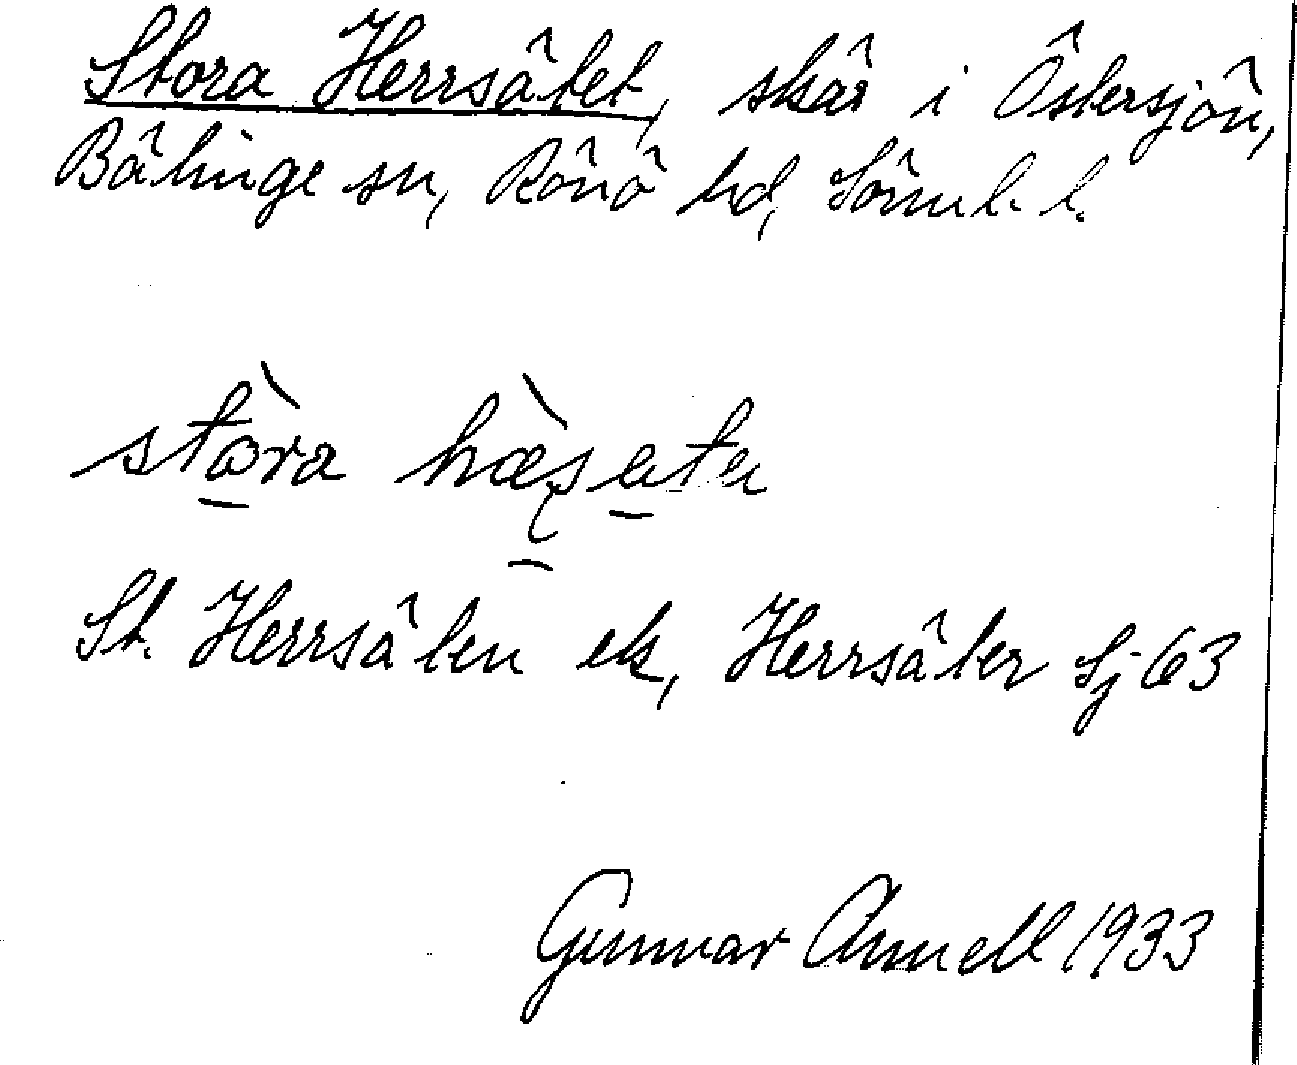 Stora Herrsätet, skär i Östersjön,
Bälinge sn, Rönö hd, Sörml. l.
stòra hæ̀ṣạtẹ
St. Herrsäten ek, Herrsäter Sj 63
Gunnar Annell 1933